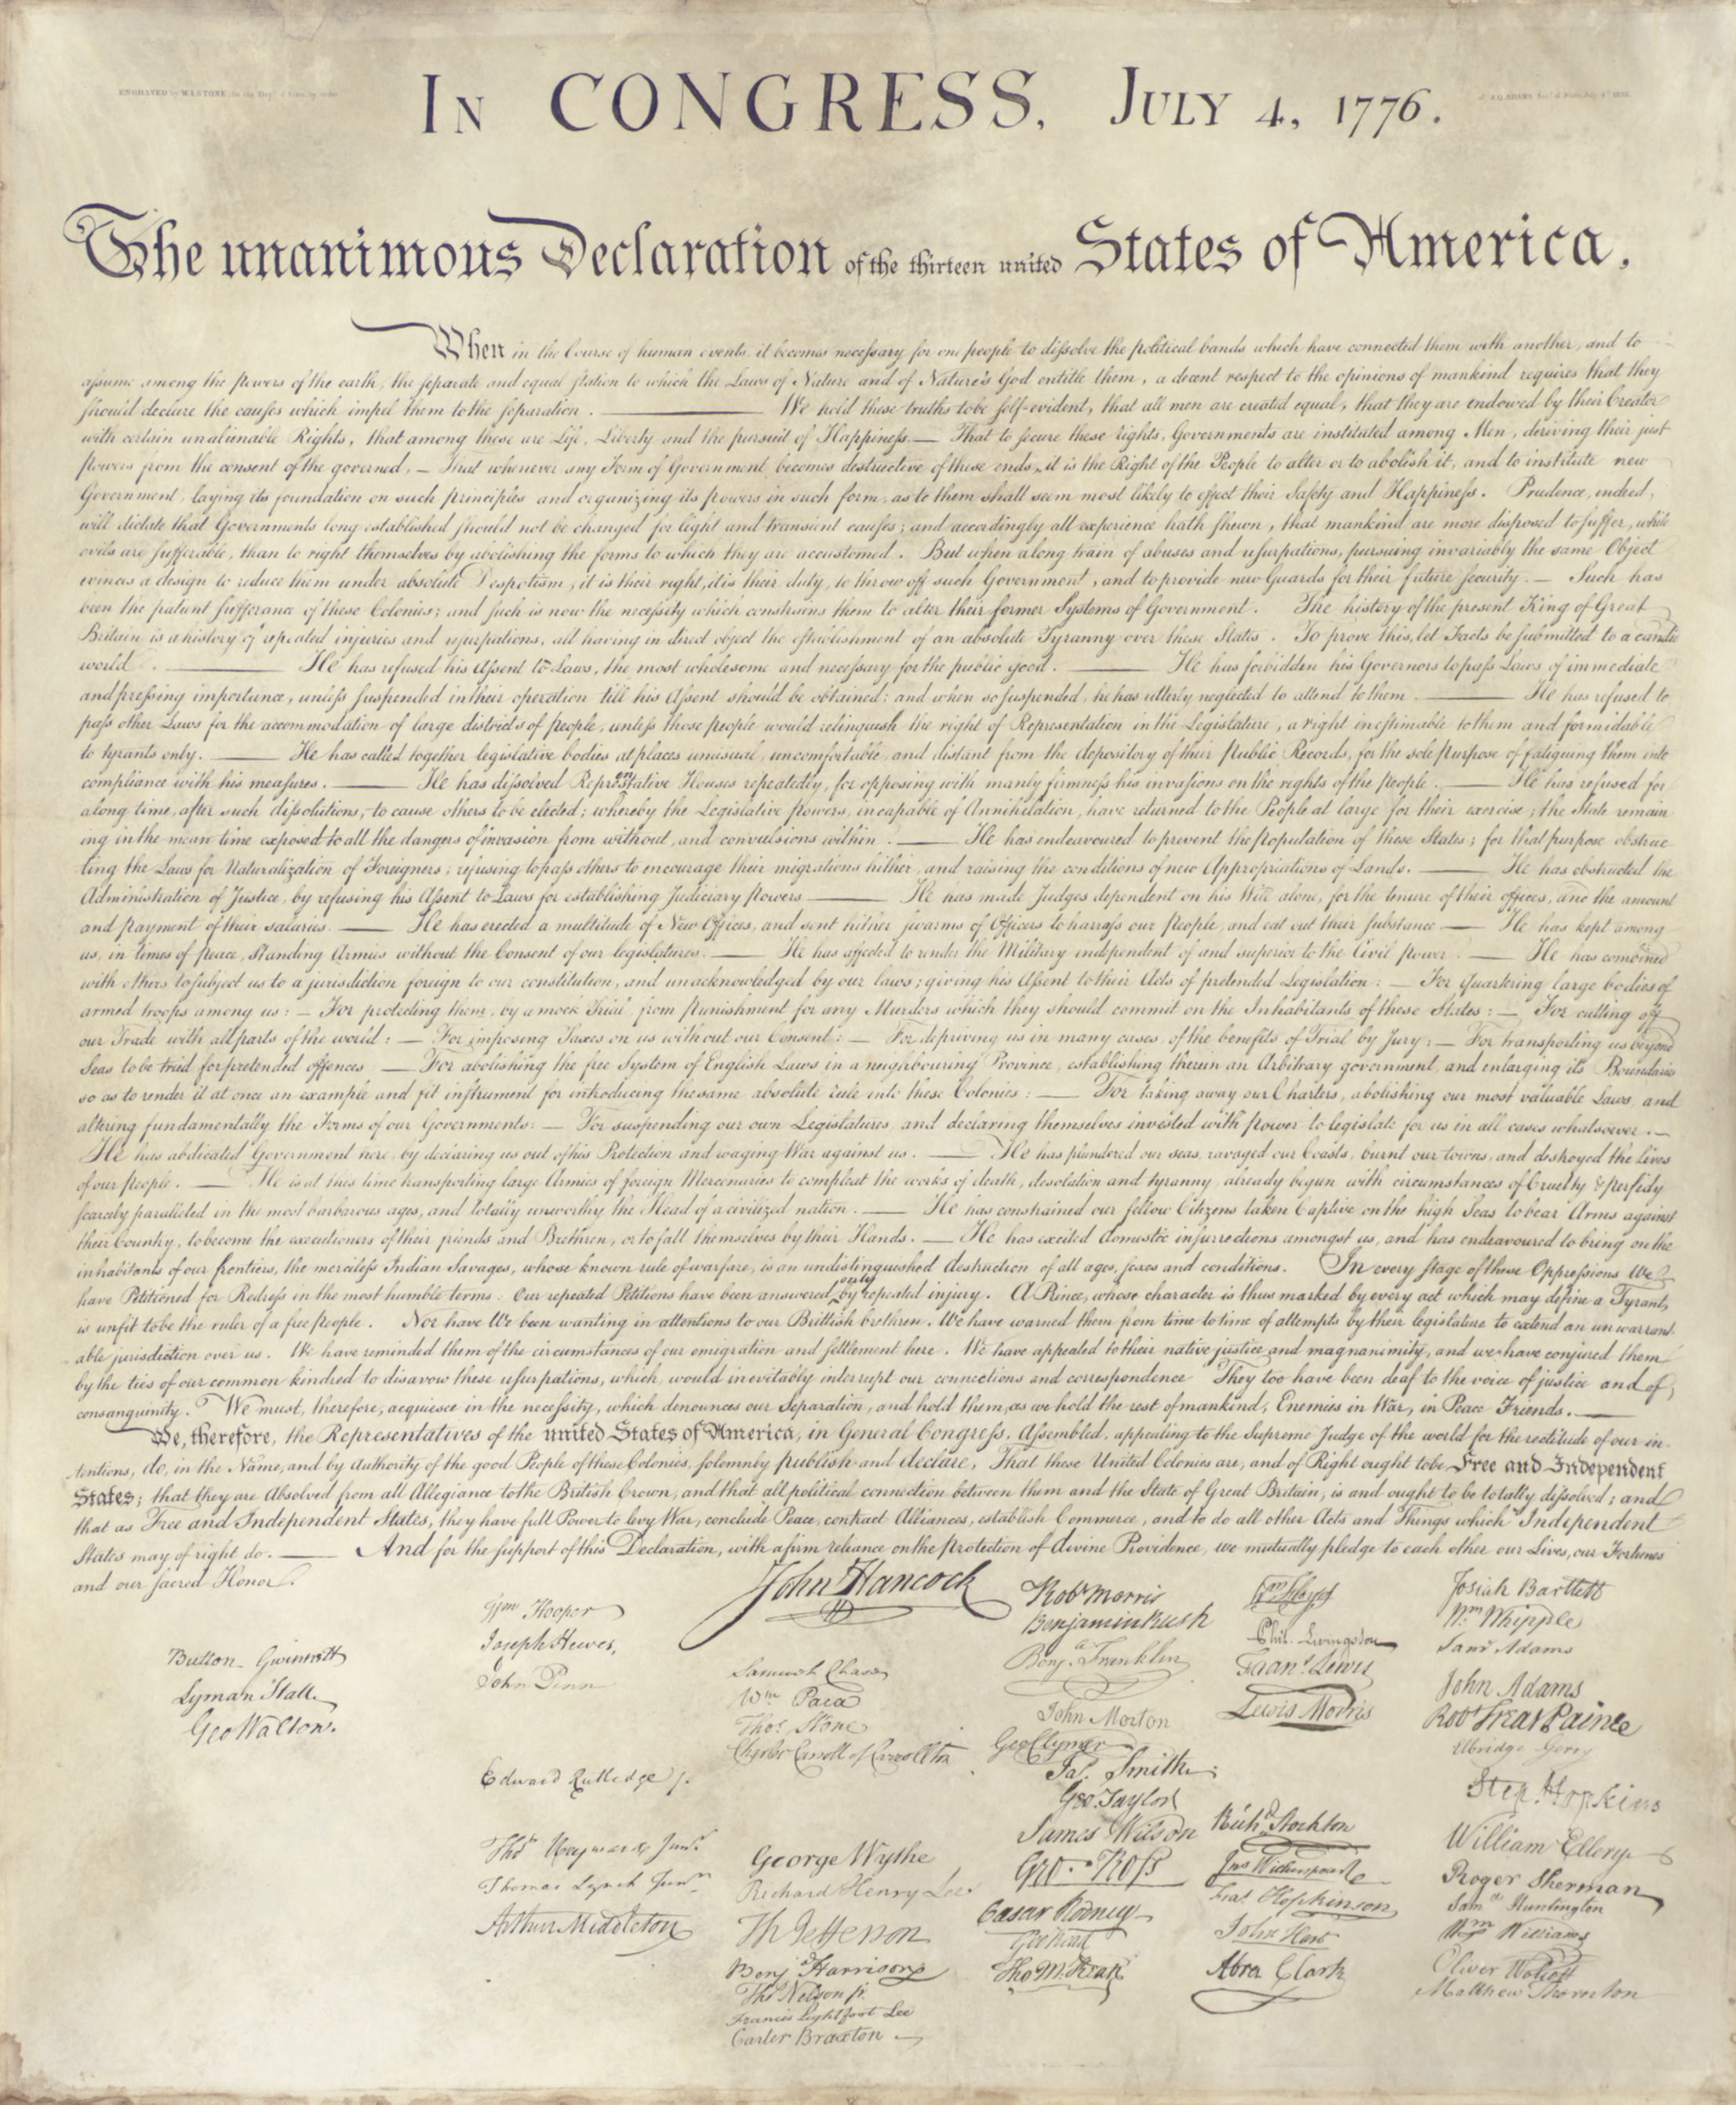 ENGRAVED by W.I.STONE, for the Dept. of State, by order
J. Q. ADAMS, Sec. of State, July 4th 1823.
In CONGRESS, July 4, 1776.
The unanimous Declaration of the thirteen united States of America,
When in the Course of human events, it becomes necessary for one people to dissolve the political bands which have connected them with another, and to
assume among the powers of the earth, the separate and equal station to which the Laws of Nature and of Nature's God entitle them, a decent respect to the opinions of mankind requires that they
should declare the causes which impel them to the separation. ——— We hold these truths to be self-evident, that all men are created equal, that they are endowed by their Creator
with certain unalienable Rights, that among these are Life, Liberty and the pursuit of Happiness.— That to secure these rights, Governments are instituted among Men, deriving their just
powers from the consent of the governed, — That whenever any Form of Government becomes destructive of these ends, it is the Right of the People to alter or to abolish it, and to institute new
Government, laying its foundation on such principles and organizing its powers in such form, as to them shall seem most likely to effect their Safety and Happiness. Prudence, indeed,
will dictate that Governments long established should not be changed for light and transient causes; and accordingly all experience hath shewn, that mankind are more disposed to suffer, while
evils are sufferable, than to right themselves by abolishing the forms to which they are accustomed. But when a long train of abuses and usurpations, pursuing invariably the same Object
evinces a design to reduce them under absolute Despotism, it is their right, it is their duty, to throw off such Government, and to provide new Guards for their future security. — Such has
been the patient sufferance of these Colonies; and such is now the necessity which constrains them to alter their former Systems of Government. The history of the present King of Great
Britain is a history of repeated injuries and usurpations, all having in direct object the establishment of an absolute Tyranny over these States. To prove this, let Facts be submitted to a candid
world. ——— He has refused his Assent to Laws, the most wholesome and necessary for the public good. ——— He has forbidden his Governors to pass Laws of immediate
and pressing importance, unless suspended in their operation till his Assent should be obtained; and when so suspended, he has utterly neglected to attend to them. ——— He has refused to
pass other Laws for the accommodation of large districts of people, unless those people would relinquish the right of Representation in the Legislature, a right inestimable to them and formidable
to tyrants only. ——— He has called together legislative bodies at places unusual, uncomfortable, and distant from the depository of their Public Records, for the sole purpose of fatiguing them into
compliance with his measures. ——— He has dissolved Representative Houses repeatedly, for opposing with manly firmness his invasions on the rights of the people. ——— He has refused for
a long time, after such dissolutions, to cause others to be elected; whereby the Legislative powers, incapable of Annihilation, have returned to the People at large for their exercise; the State remain
ing in the mean time exposed to all the dangers of invasion from without, and convulsions within. ——— He has endeavoured to prevent the population of these States; for that purpose obstruc
ting the Laws for Naturalization of Foreigners; refusing to pass others to encourage their migrations hither, and raising the conditions of new Appropriations of Lands. ——— He has obstructed the
Administration of Justice, by refusing his Assent to Laws for establishing Judiciary powers ——— He has made Judges dependent on his Will alone, for the tenure of their offices, and the amount
and payment of their salaries. ——— He has erected a multitude of New Offices, and sent hither swarms of Officers to harrass our People, and eat out their substance ——— He has kept among
us, in times of peace, Standing Armies without the Consent of our legislatures. ——— He has affected to render the Military independent of and superior to the Civil power. ——— He has combined
with others to subject us to a jurisdiction foreign to our constitution, and unacknowledged by our laws; giving his Assent to their Acts of pretended Legislation: — For Quartering large bodies of
armed troops among us: — For protecting them, by a mock Trial, from punishment for any Murders which they should commit on the Inhabitants of these States: — For cutting off
our Trade with all parts of the world: — For imposing Taxes on us without our Consent: — For depriving us in many cases, of the benefits of Trial by Jury: — For transporting us beyond
Seas to be tried for pretended offences — For abolishing the free System of English Laws in a neighbouring Province, establishing therein an Arbitrary government, and enlarging its Boundaries
so as to render it at once an example and fit instrument for introducing the same absolute rule into these Colonies: — For taking away our Charters, abolishing our most valuable Laws, and
altering fundamentally the Forms of our Governments: — For suspending our own Legislatures, and declaring themselves invested with power to legislate for us in all cases whatsoever. —
He has abdicated Government here, by declaring us out of his Protection and waging War against us. ——— He has plundered our seas, ravaged our Coasts, burnt our towns, and destroyed the lives
of our people. ——— He is at this time transporting large Armies of foreign Mercenaries to compleat the works of death, desolation and tyranny, already begun with circumstances of Cruelty & perfidy
scarcely paralleled in the most barbarous ages, and totally unworthy the Head of a civilized nation. ——— He has constrained our fellow Citizens taken Captive on the high Seas to bear Arms against
their Country, to become the executioners of their friends and Brethren, or to fall themselves by their Hands. — He has excited domestic insurrections amongst us, and has endeavoured to bring on the
inhabitants of our frontiers, the merciless Indian Savages, whose known rule of warfare, is an undistinguished destruction of all ages, sexes and conditions. In every stage of these Oppressions We
have Petitioned for Redress in the most humble terms: Our repeated Petitions have been answered only by repeated injury. A Prince, whose character is thus marked by every act which may define a Tyrant,
is unfit to be the ruler of a free people. Nor have We been wanting in attentions to our Brittish brethren. We have warned them from time to time of attempts by their legislature to extend an unwarrant
able jurisdiction over us. We have reminded them of the circumstances of our emigration and settlement here. We have appealed to their native justice and magnanimity, and we have conjured them
by the ties of our common kindred to disavow these usurpations, which, would inevitably interrupt our connections and correspondence They too have been deaf to the voice of justice and of
consanguinity. We must, therefore, acquiesce in the necessity, which denounces our Separation, and hold them, as we hold the rest of mankind, Enemies in War, in Peace Friends. ———
We, therefore, the Representatives of the united States of America, in General Congress, Assembled, appealing to the Supreme Judge of the world for the rectitude of our in
tentions, do, in the Name, and by Authority of the good People of these Colonies, solemnly publish and declare, That these United Colonies are, and of Right ought to be Free and Independent
States; that they are Absolved from all Allegiance to the British Crown, and that all political connection between them and the State of Great Britain, is and ought to be totally dissolved; and
that as Free and Independent States, they have full Power to levy War, conclude Peace, contract Alliances, establish Commerce, and to do all other Acts and Things which Independent
States may of right do. ——— And for the support of this Declaration, with a firm reliance on the protection of divine Providence, we mutually pledge to each other our Lives, our Fortunes
and our sacred Honor.
Button Gwinnett
Lyman Hall
Geo Walton.
Wm Hooper
Joseph Hewes,
John Penn
Edward Rutledge /.
Thos Heyward Junr.
Thomas Lynch Junr.
Arthur Middleton
John Hancock
Samuel Chase
Wm Paca
Thos. Stone
Charles Carroll of Carrollton
George Wythe
Richard Henry Lee
Th Jefferson
Benj Harrison
Thos Nelson jr.
Francis Lightfoot Lee
Carter Braxton
Robt Morris
Benjamin Rush
Benja. Franklin
John Morton
Geo Clymer
Jas. Smith.
Geo. Taylor
James Wilson
Geo. Ross
Caesar Rodney
Geo Read
Tho M:Kean
Wm Floyd
Phil. Livingston
Frans. Lewis
Lewis Morris
Richd. Stockton
Jno Witherspoon
Fras. Hopkinson
John Hart
Abra Clark
Josiah Bartlett
Wm. Whipple
Saml Adams
John Adams
Robt Treat Paine
Elbridge Gerry
Step. Hopkins
William Ellery
Roger Sherman
Samel Huntington
Wm Williams
Oliver Wolcott
Matthew Thornton